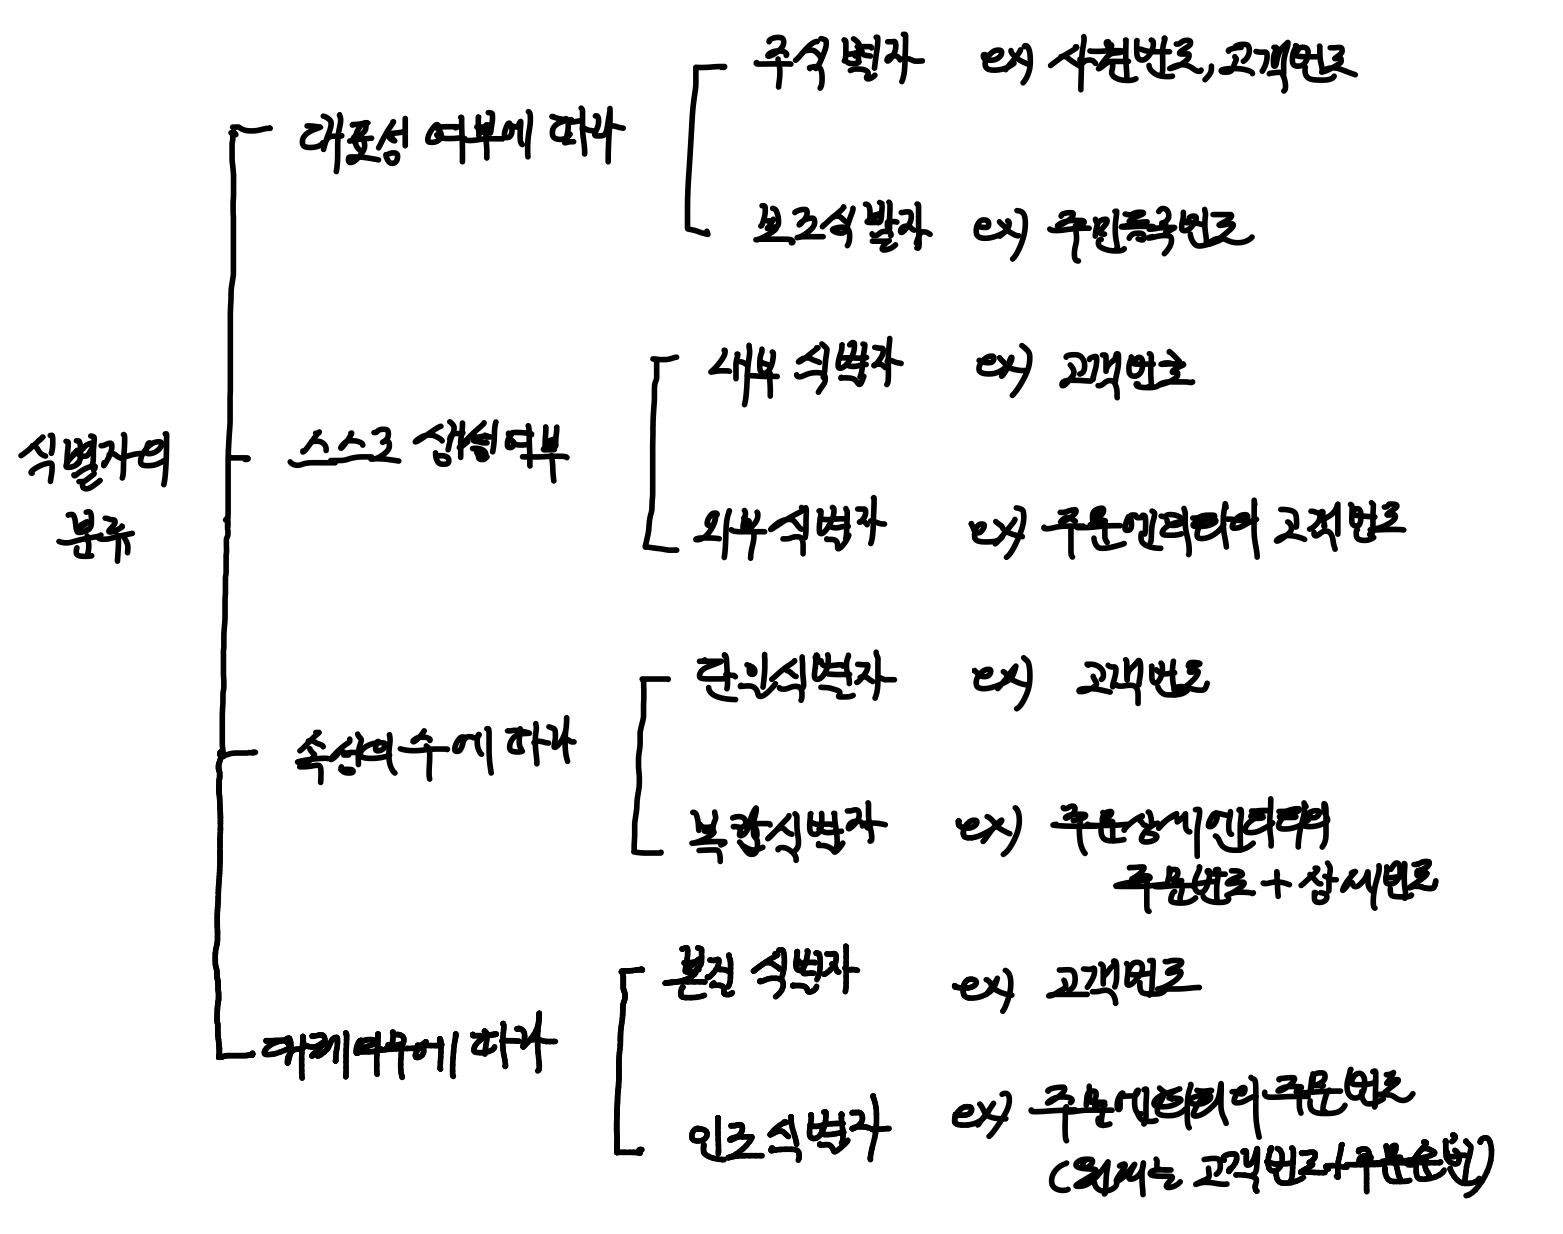 식별자의
분류
대표성 여부에 따라
주식별자 ex) 사원번호, 고객번호
보조식별자 ex) 주민등록번호
스스로 생성여부
내부 식별자 ex) 고객번호
외부식별자 ex) 주문엔터티의 고객번호
속성의 수에 따라
단일식별자 ex) 고객번호
복합식별자 ex) 주문상세엔터티의
주문번호 + 상세번호
대체여부에 따라
본질 식별자 ex) 고객번호
인조식별자 ex) 주문엔터티의 주문번호
(원래는 고객번호+주문순번)